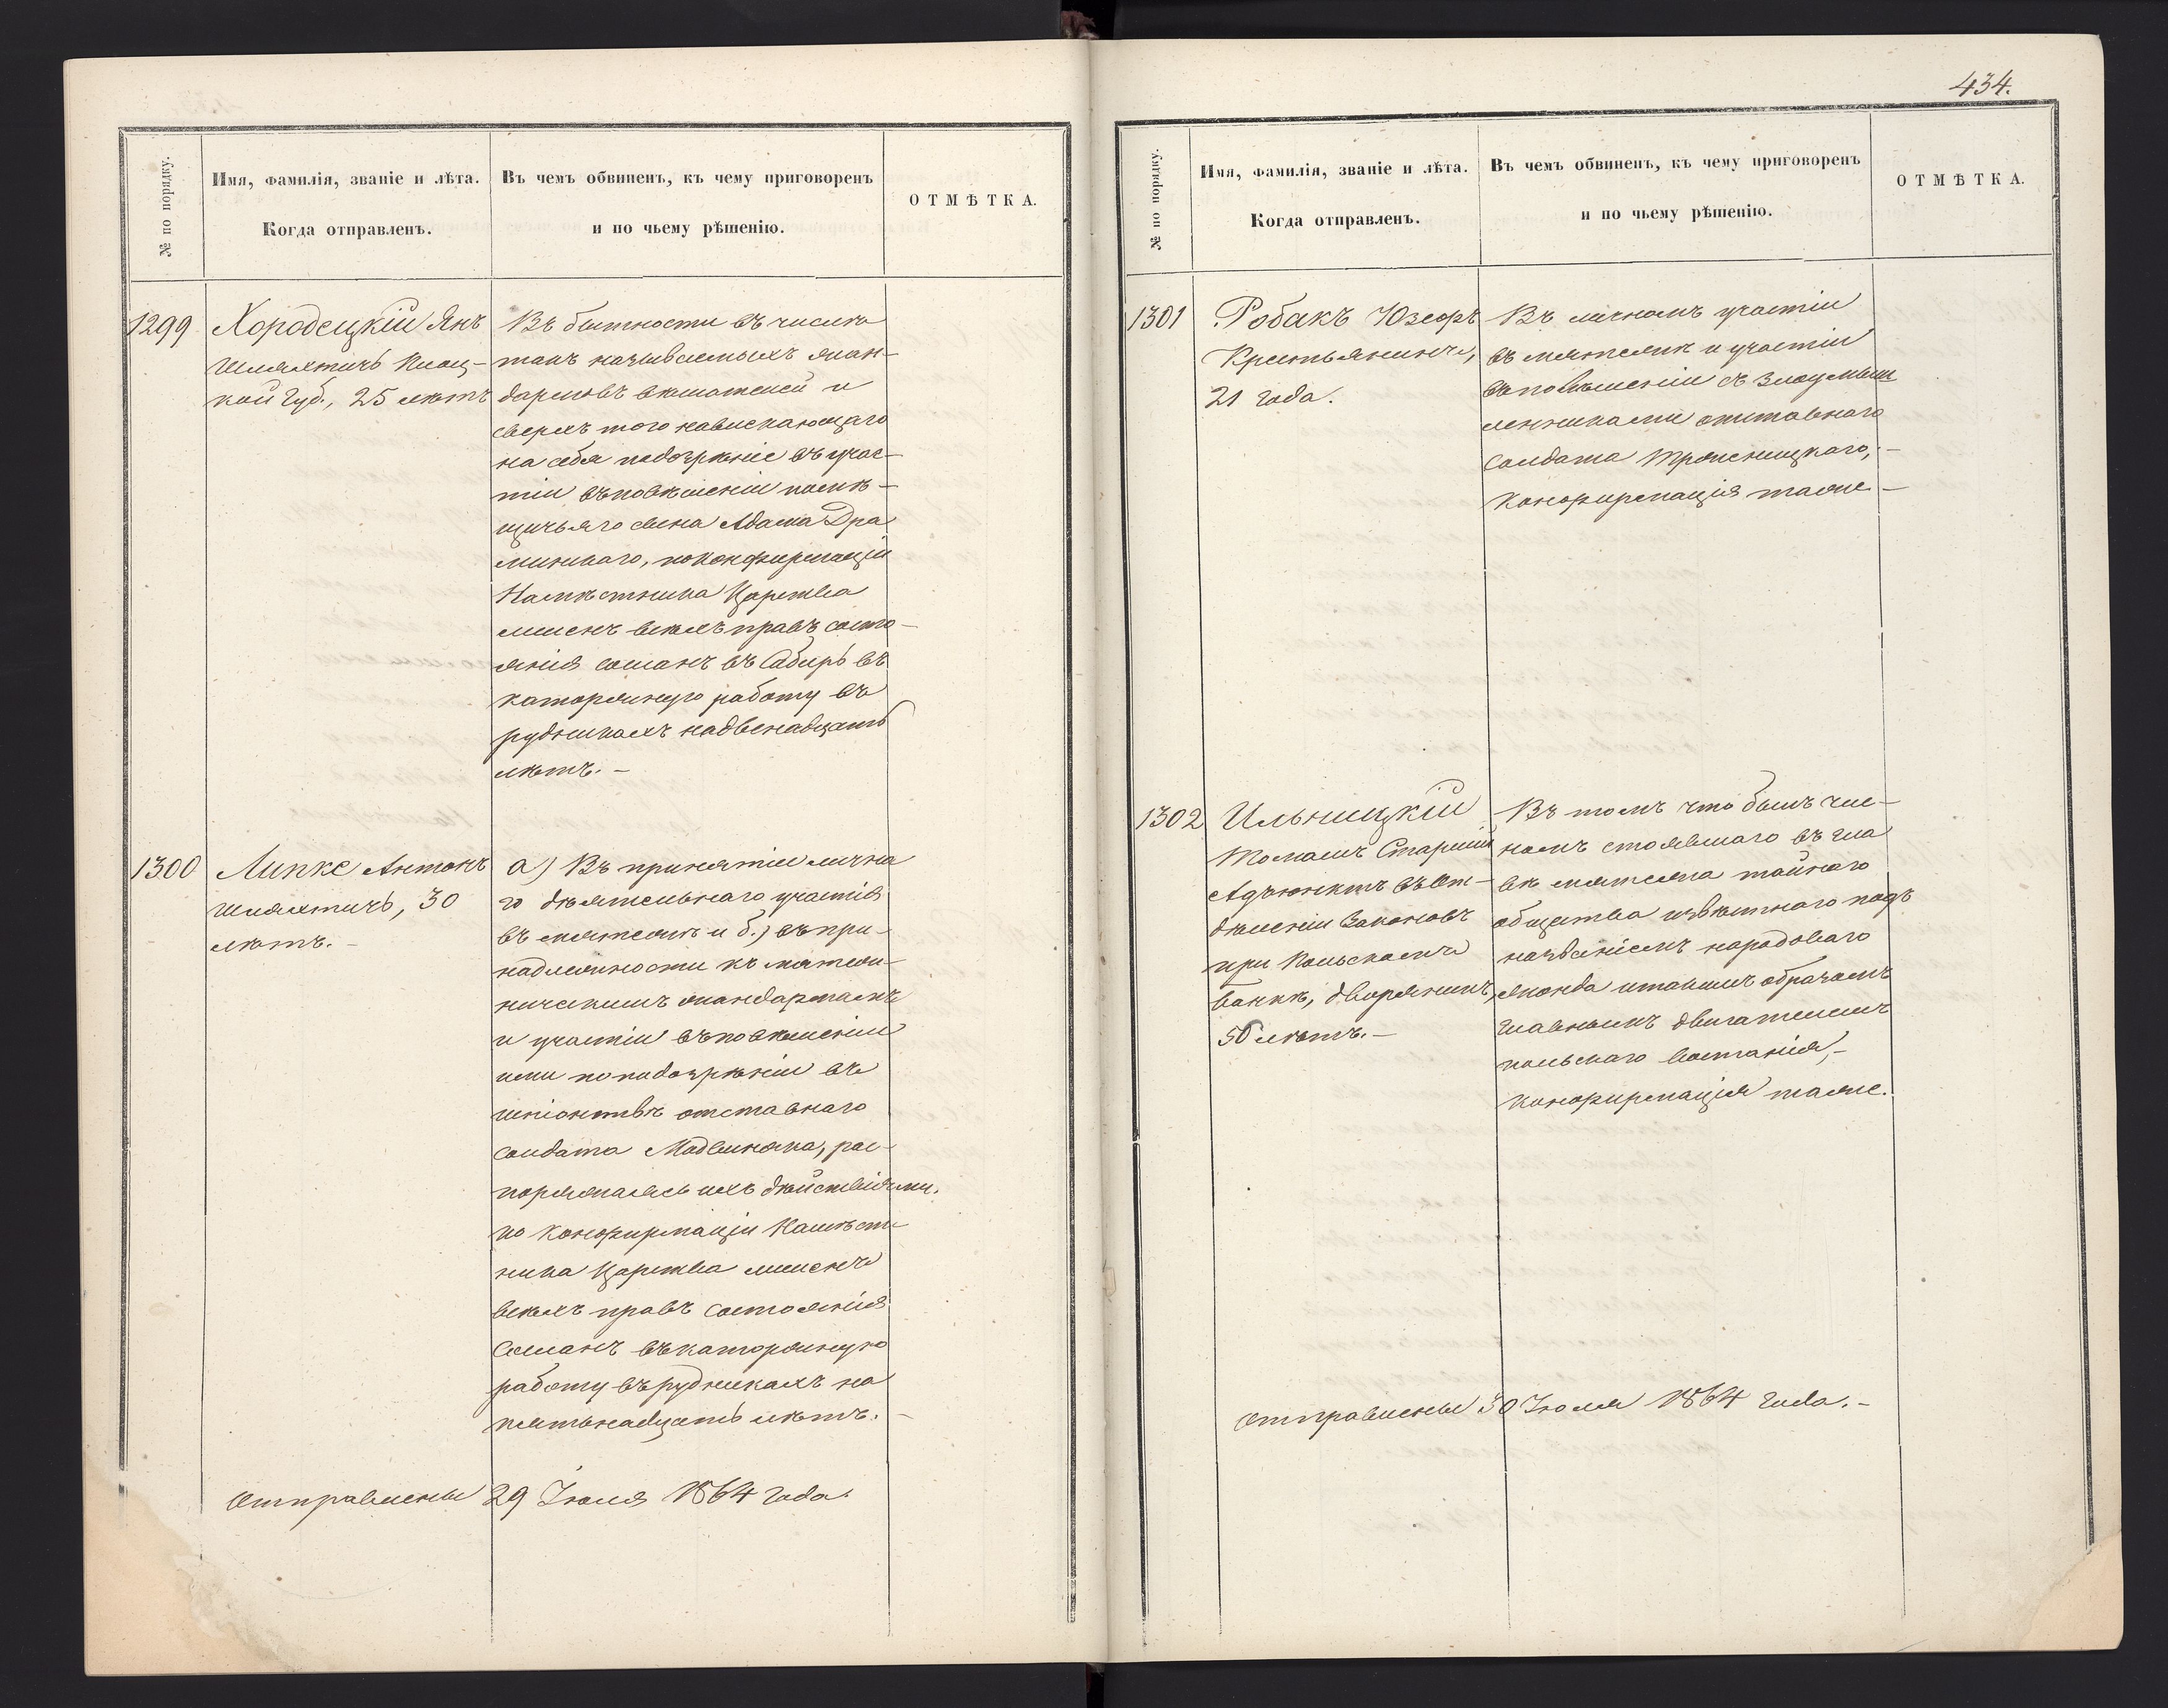 434.
№ по порядку.
Имя, фамилія, званіе и лѣта.
Когда отправленъ.
Въ чемъ обвиненъ, къ чему приговоренъ
и по чьему рѣшенію.
ОТМѢТКА.
1299
Хородецкій Янъ
Шляхтичь Плоц-
кой Губ., 25 лѣтъ
Въ бытности въ числѣ
такъ называемыхъ жан-
дармовъ вѣшателей и
сверхъ того навлекающаго
на себя подозрѣніе въ учас-
тіи въ повѣшеніи помѣ-
щичьяго сына Адама Дра
минскаго, по конфирмаціи
Намѣстника Царства
лишенъ всѣхъ правъ состо-
янія сосланъ въ Сибирь въ
каторжную работу въ
рудникахъ на двенадцать
лѣтъ. -
1300
Липке Антонъ
Шляхтичь, 30
лѣтъ. -
а) Въ принятіи лична
го дѣятельнаго участія
въ мятежѣ и б.) въ при-
надлежности къ мятеж-
ническимъ жандармамъ
и участіи въ повѣшеніи
ими по подозрѣнію въ
шпіонствѣ отставнаго
солдата Мадлиняка, рас-
поряжаясь ихъ дѣйствіями.
по конфирмаціи Намѣст-
ника Царства лишенъ
всѣхъ правъ состоянія
Сосланъ въ каторжную
работу въ рудникахъ на
пятьнадцать лѣтъ. -
Отправлены 29 Іюля 1864 года.
№ по порядку.
Имя, фамилія, званіе и лѣта.
Когда отправленъ.
Въ чемъ обвиненъ, къ чему приговоренъ
и по чьему рѣшенію.
ОТМѢТКА.
1301
Робакъ Юзефъ
Крестьянинъ,
21 года.
Въ личномъ участіи
въ мятежѣ и участіи
въ повѣшеніи съ злоумыш
ленниками отставнаго
солдата Тросницкаго, -
Конфирмація таже -
1302
Ильницкій
Томашъ Старшій
Адъюнктъ въ От-
дѣленіи Законовъ
при Польскомъ
банкѣ, дворянинъ,
50 лѣтъ. -
Въ томъ что былъ чле-
номъ стоявшаго въ гла
вѣ мятежа тайнаго
общества извѣстнаго подъ
названіемъ народоваго
жонда и такимъ образомъ
главнымъ двигателемъ
польскаго востанія, -
конфирмація таже.
Отправлены 30 Іюля 1864 года. -